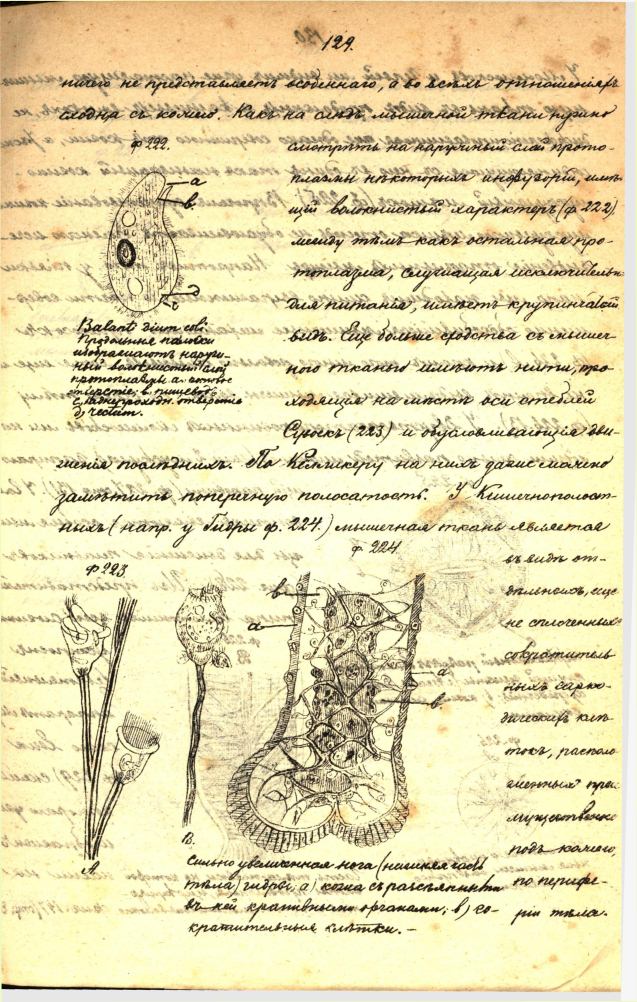 129.
ничего не представляетъ особеннаго, а во всѣхъ отношеніяхъ
сходна съ кожею. Какъ на слѣдъ мышечной ткани нужно
ф 222.
смотрѣть на наружный слой прото-
плазмы нѣкоторыхъ инфузорій, имѣю-
щій волокнистый характеръ (ф 222)
между тѣмъ какъ остальная про-
топлазма, служащая исключительно
для питанія, имѣетъ крупинчатый
видъ. Еще больше сходства съ мышеч-
ного тканью имѣютъ нити, про-
ходящія на мѣстѣ оси стеблей
Сувоекъ (223) и обусловливающія дви-
a
b.
D
c
Balantidium coli.
Продольныя полоски
изображаютъ наруж-
ный волокнистый слой
протоплазмы a. ротовое
отверстіе; b. пищеводъ
c. заднепроходн. отверстіе
d.
женія послѣднихъ. По Келликеру на нихъ даже можно
замѣтить поперечную полосатость. У Кишечнополост-
ныхъ (напр. у Гидры ф. 224.) мышечная ткань является
ф 223.
ф. 224
въ видѣ от-
дѣльныхъ, еще
не сплоченныхъ
сократитель-
ныхъ сарко-
дическихъ клѣ-
токъ, располо-
женныхъ преи-
мущественно
подъ кожею,
по перифе-
ріи тѣла.
в
а
а
в.
A.
B.
Сильно увеличенная нога (нижняя часть
тѣла) гидры; а) кожа съ разсѣянными
въ ней крапивными органами; в) со-
кратительныя клѣтки. –